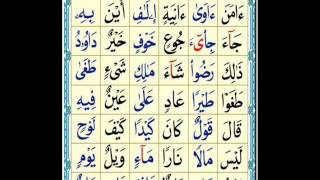 ءَامَنَ ءَاوٰى ءَانِيَةٍ اٖلٰفِ اَيْنَ بِهٖ
جَآءَ جِآىْءَ جُوْعٍ خَوْفٍ خَيْرٌ دَاوٗدَ
ذٰلِكَ رَضُوْا شَآءَ مٰلِكِ شَىْءٍ طَغٰى
طَغَوْا طَيْرًا عَادٍ عَلٰى عَيْنٌ فِيْهِ
قَالَ قَوْلٌ كَانَ كَيْدًا كَيْفَ لَوْحٍ
لَيْسَ مَالًا نَارًا مَآءٍ وَيْلٌ يَوْمٍ